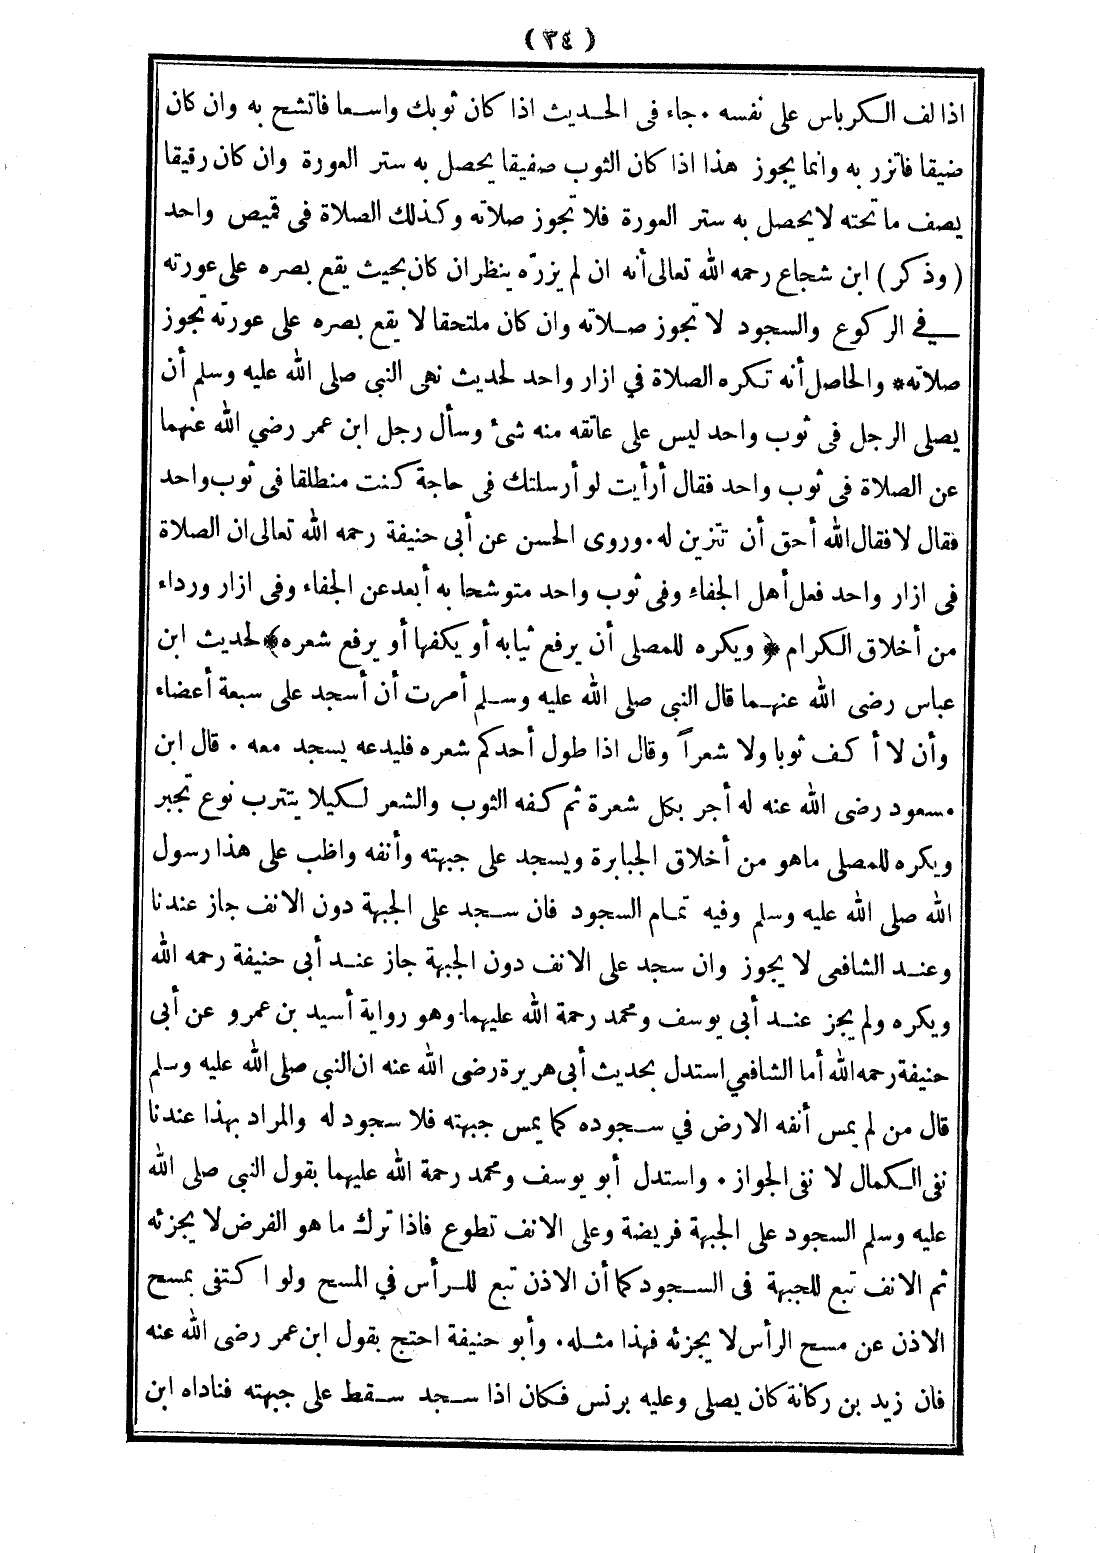 ( ٣٤ )
اذا لف الكرباس على نفسه . جاء فى الحديث اذا كان ثوبك واسعا فاتشح به وان كان
ضيقا فاتزر به وانما يجوز هذا اذا كان الثوب صفيقا يحصل به ستر العورة وان كان رقيقا
يصف ما تحته لا يحصل به ستر العورة فلا تجوز صلاته وكذلك الصلاة فى قميص واحد
( وذكر ) ابن شجاع رحمه الله تعالى أنه ان لم يزرّه ينظر ان كان بحيث يقع بصره على عورته
في الركوع والسجود لا تجوز صلاته وان كان ملتحفا لا يقع بصره على عورته تجوز
صلاته* والحاصل أنه تكره الصلاة في ازار واحد لحديث نهى النبي صلى الله عليه وسلم أن
يصلى الرجل فى ثوب واحد ليس على عاتقه منه شئ وسأل رجل ابن عمر رضي الله عنهما
عن الصلاة فى ثوب واحد فقال أرأيت لو أرسلتك فى حاجة كنت منطلقا فى ثوب واحد
فقال لا فقال الله أحق أن تتزين له . وروى الحسن عن أبى حنيفة رحمه الله تعالى ان الصلاة
فى ازار واحد فعل أهل الجفاء وفى ثوب واحد متوشحا به أبعد عن الجفاء وفى ازار ورداء
من أخلاق الكرام ﴿ ويكره للمصلى أن يرفع ثيابه أو يكفها أو يرفع شعره﴾ لحديث ابن
عباس رضى الله عنهما قال النبي صلى الله عليه وسلم أمرت أن أسجد على سبعة أعضاء
وأن لا أكف ثوبا ولا شعراً وقال اذا طول أحدكم شعره فليدعه يسجد معه . قال ابن
مسعود رضى الله عنه له أجر بكل شعرة ثم كفه الثوب والشعر لكيلا يتترب نوع تجبر
ويكره للمصلى ما هو من أخلاق الجبابرة ويسجد على جبهته وأنفه واظب على هذا رسول
الله صلى الله عليه وسلم وفيه تمام السجود فان سجد على الجبهة دون الانف جاز عندنا
وعند الشافعى لا يجوز وان سجد على الانف دون الجبهة جاز عند أبى حنيفة رحمه الله
ويكره ولم يجز عند أبي يوسف ومحمد رحمة الله عليهما وهو رواية أسيد بن عمرو عن أبي
حنيفة رحمه الله أما الشافعي استدل بحديث أبى هريرة رضى الله عنه ان النبي صلى الله عليه وسلم
قال من لم يمس أنفه الارض في سجوده كما يمس جبهته فلا سجود له والمراد بهذا عندنا
نفى الكمال لا نفى الجواز . واستدل أبو يوسف ومحمد رحمة الله عليهما بقول النبي صلى الله
عليه وسلم السجود على الجبهة فريضة وعلى الانف تطوع فاذا ترك ما هو الفرض لا يجزئه
ثم الانف تبع للجبهة فى السجود كما أن الاذن تبع للرأس في المسح ولو اكتفى بمسح
الاذن عن مسح الرأس لا يجزئه فهذا مثله . وأبو حنيفة احتج بقول ابن عمر رضى الله عنه
فان زيد بن ركانة كان يصلى وعليه برنس فكان اذا سجد سقط على جبهته فناداه ابن